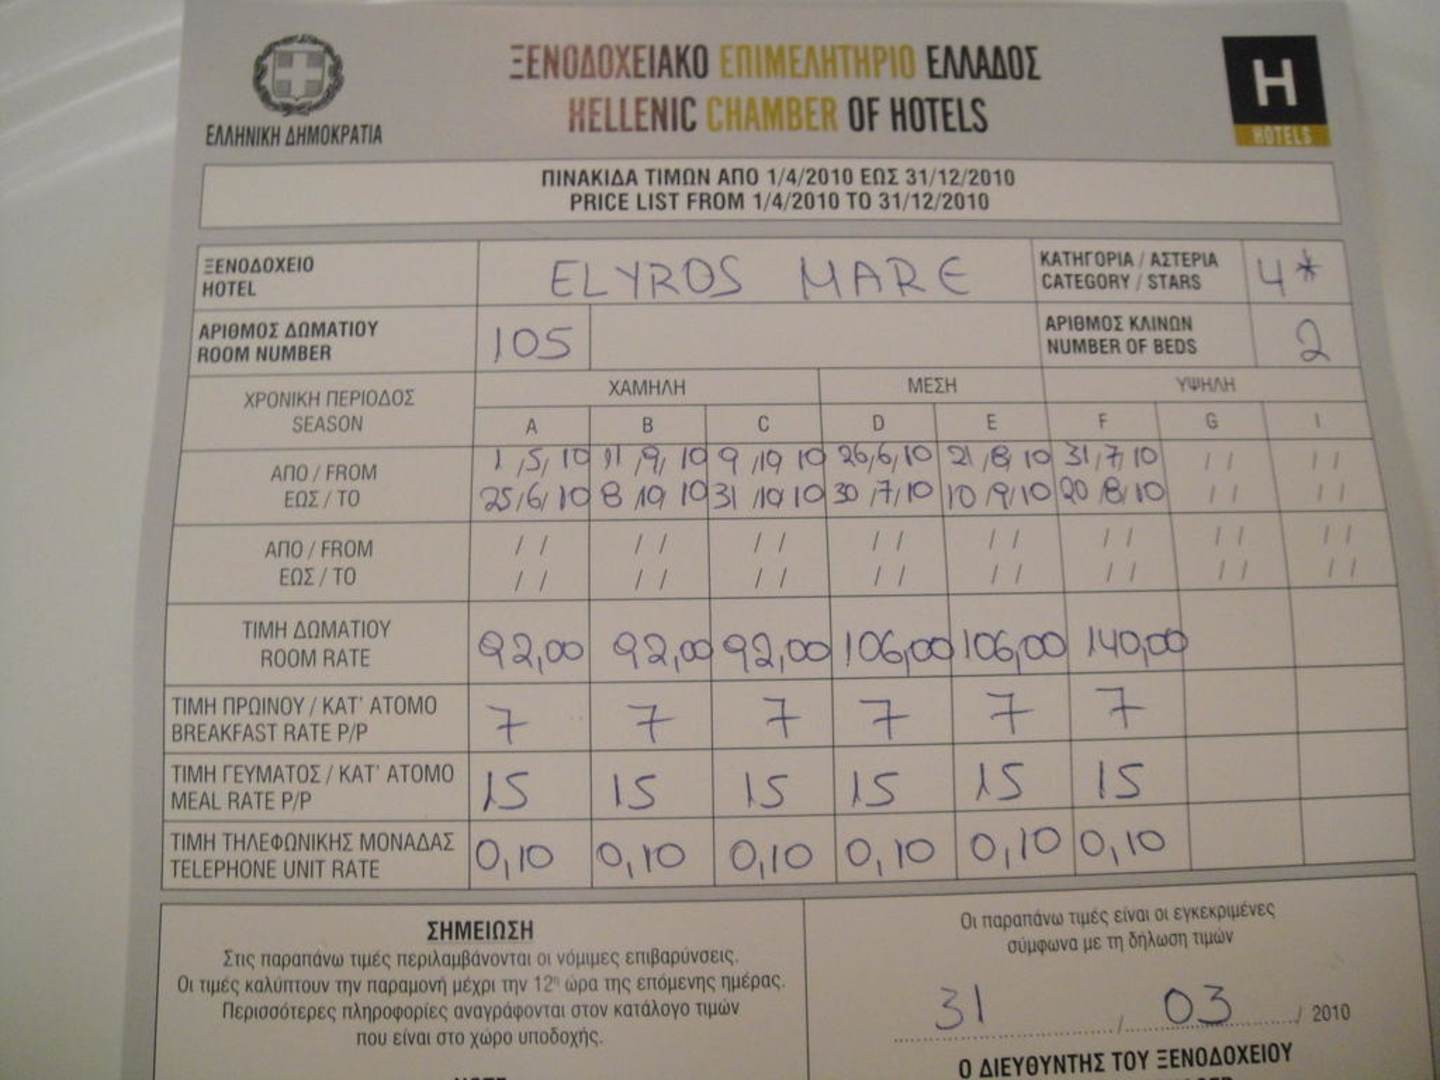 ΞΕΝΟΔΟΧΕΙΑΚΟ ΕΠΙΜΕΛΗΤΗΡΙΟ ΕΛΛΑΔΟΣ
HELLENIC CHAMBER OF HOTELS
ΕΛΛΗΝΙΚΗ ΔΗΜΟΚΡΑΤΙΑ
H
HOTELS
ΠΙΝΑΚΙΔΑ ΤΙΜΩΝ ΑΠΟ 1/4/2010 ΕΩΣ 31/12/2010
PRICE LIST FROM 1/4/2010 TO 31/12/2010
ΞΕΝΟΔΟΧΕΙΟ
HOTEL
ELYROS MARE
ΚΑΤΗΓΟΡΙΑ / ΑΣΤΕΡΙΑ
CATEGORY / STARS
4*
ΑΡΙΘΜΟΣ ΔΩΜΑΤΙΟΥ
ROOM NUMBER
105
ΑΡΙΘΜΟΣ ΚΛΙΝΩΝ
NUMBER OF BEDS
2
ΧΡΟΝΙΚΗ ΠΕΡΙΟΔΟΣ
SEASON
ΧΑΜΗΛΗ ΜΕΣΗ ΥΨΗΛΗ
A B C D E F G I
ΑΠΟ / FROM 1/5/10 11/9/10 9/10/10 26/6/10 21/8/10 31/7/10 / / / /
ΕΩΣ / TO 25/6/10 8/10/10 31/10/10 30/7/10 10/9/10 20/8/10 / / / /
ΑΠΟ / FROM / / / / / / / / / / / / / / / /
ΕΩΣ / TO / / / / / / / / / / / / / / / /
ΤΙΜΗ ΔΩΜΑΤΙΟΥ
ROOM RATE
92,00 92,00 92,00 106,00 106,00 140,00
ΤΙΜΗ ΠΡΩΙΝΟΥ / ΚΑΤ' ΑΤΟΜΟ
BREAKFAST RATE P/P
7 7 7 7 7 7
ΤΙΜΗ ΓΕΥΜΑΤΟΣ / ΚΑΤ' ΑΤΟΜΟ
MEAL RATE P/P
15 15 15 15 15 15
ΤΙΜΗ ΤΗΛΕΦΩΝΙΚΗΣ ΜΟΝΑΔΑΣ
TELEPHONE UNIT RATE
0,10 0,10 0,10 0,10 0,10 0,10
ΣΗΜΕΙΩΣΗ
Στις παραπάνω τιμές περιλαμβάνονται οι νόμιμες επιβαρύνσεις.
Οι τιμές καλύπτουν την παραμονή μέχρι την 12η ώρα της επόμενης ημέρας.
Περισσότερες πληροφορίες αναγράφονται στον κατάλογο τιμών
που είναι στο χώρο υποδοχής.
Οι παραπάνω τιμές είναι οι εγκεκριμένες
σύμφωνα με τη δήλωση τιμών
31 / 03 / 2010
Ο ΔΙΕΥΘΥΝΤΗΣ ΤΟΥ ΞΕΝΟΔΟΧΕΙΟΥ